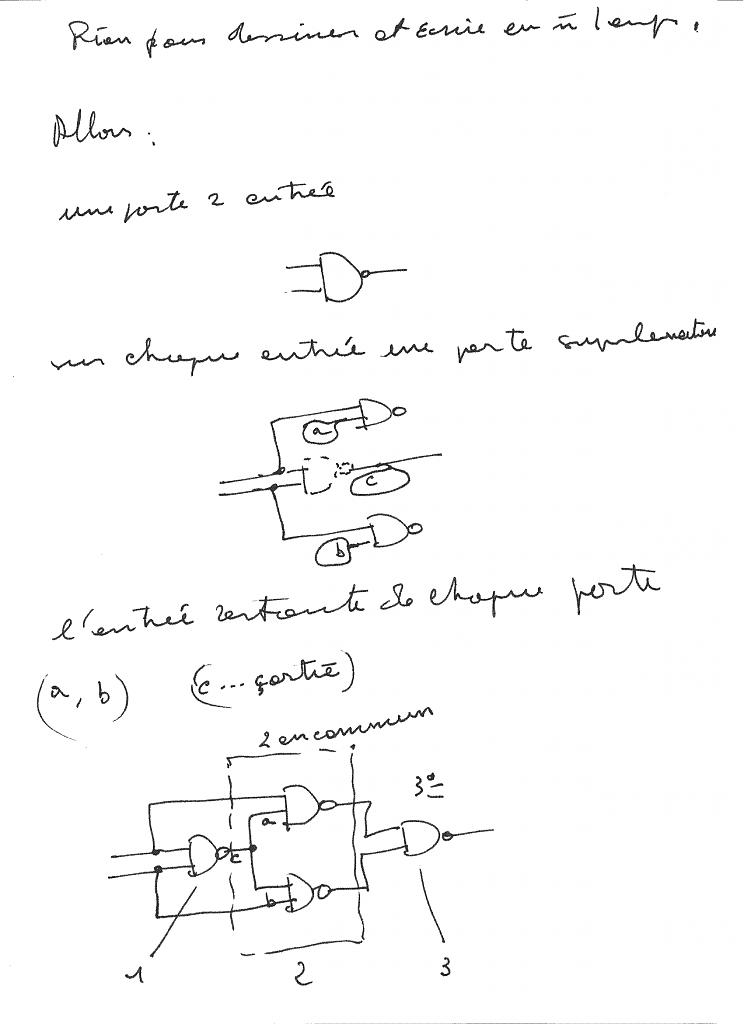 Rien pour dessiner et écrire en m temps.
Allons :
une porte 2 entrée
sur chaque entrée une porte suplementaire
a
c
b
l'entrée restante de chaque porte
(a, b) (c ... sortie)
2 en commun
3°
a
c
b
1
2
3